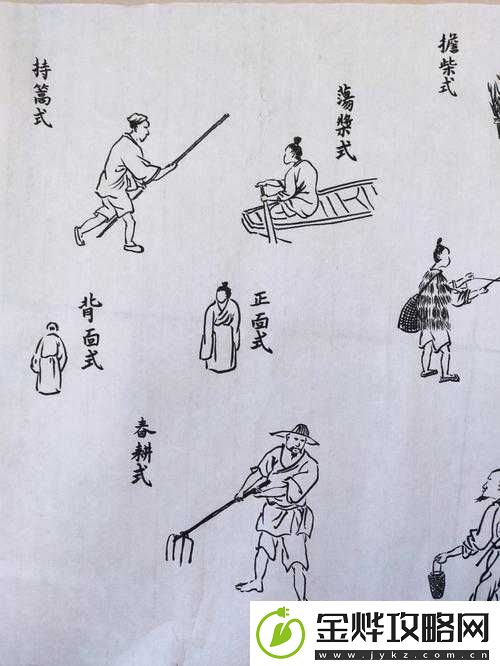 持篙式
蕩槳式
擔柴式
背面式
正面式
春耕式
金烨攻略网
www.jykz.com.cn